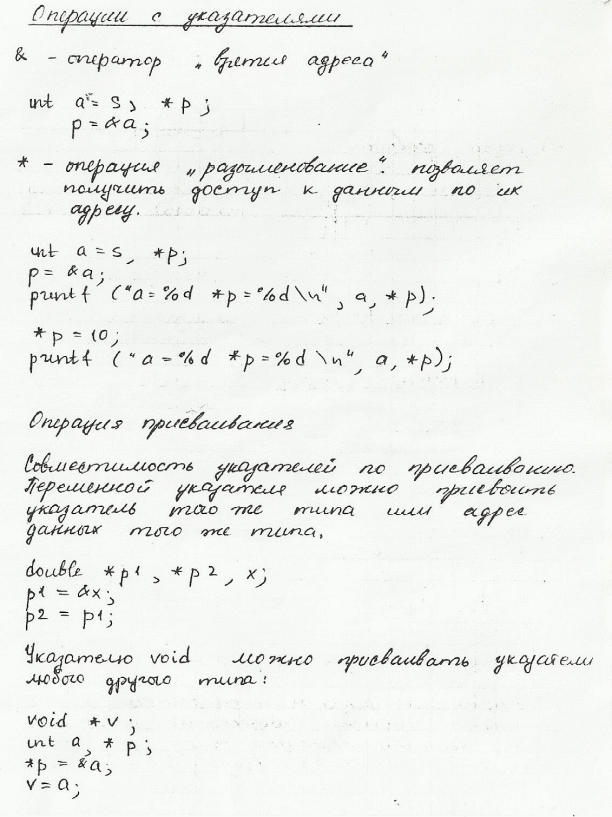 Операции с указателями
& - оператор „взятия адреса"
int a = 5, *p;
p = &a;
* - операция „разыменование". позволяет
получить доступ к данным по их
адресу.
int a = 5, *p;
p = &a;
printf ("a = %d *p = %d \n", a, *p);
*p = 10;
printf ("a = %d *p = %d \n", a, *p);
Операция присваивания
Совместимость указателей по присваиванию.
Переменной указателя можно присвоить
указатель того же типа или адрес
данных того же типа.
double *p1, *p2, x;
p1 = &x;
p2 = p1;
Указателю void можно присваивать указатели
любого другого типа:
void *v;
int a, *p;
*p = &a;
v = a;